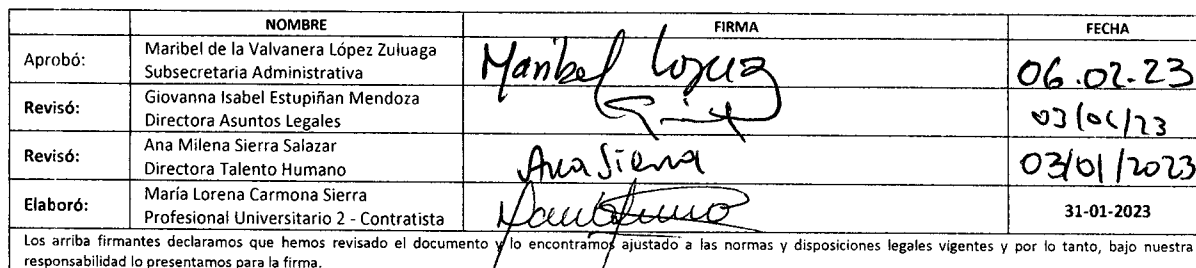 NOMBRE FIRMA FECHA
Aprobó: Maribel de la Valvanera López Zuluaga
Subsecretaria Administrativa
Maribel López 06.02.23
Revisó: Giovanna Isabel Estupiñan Mendoza
Directora Asuntos Legales
Revisó: Ana Milena Sierra Salazar
Directora Talento Humano
Ana Sierra 03/01/2023
Elaboró: María Lorena Carmona Sierra
Profesional Universitario 2 - Contratista
31-01-2023
Los arriba firmantes declaramos que hemos revisado el documento y lo encontramos ajustado a las normas y disposiciones legales vigentes y por lo tanto, bajo nuestra
responsabilidad lo presentamos para la firma.